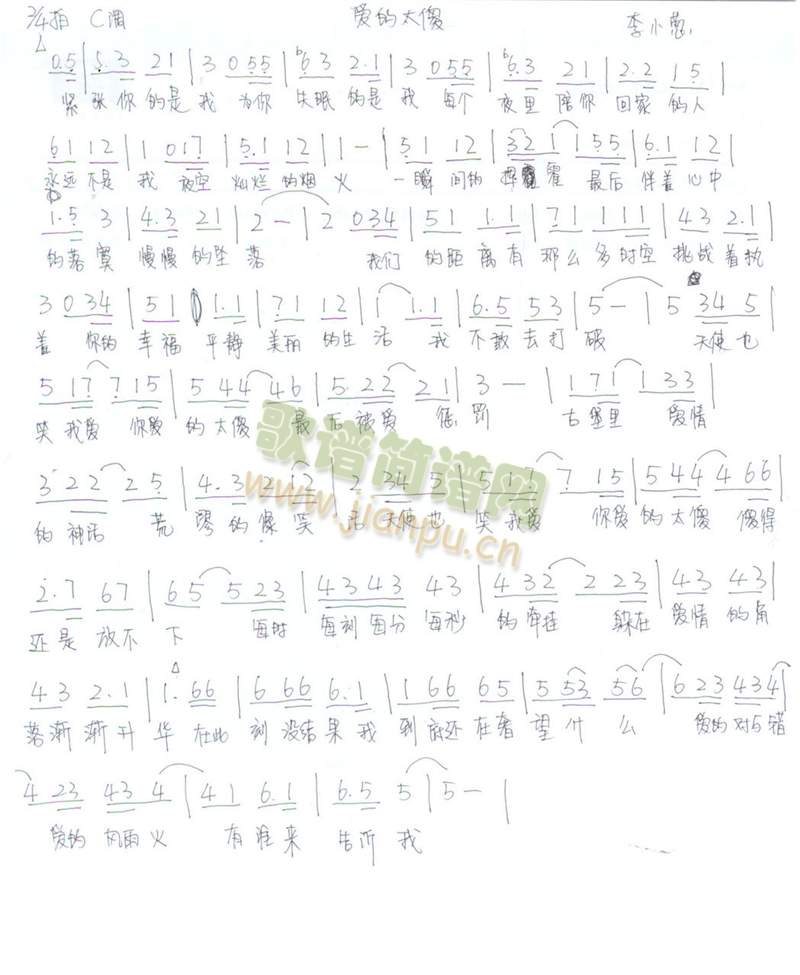 2/4拍 C调 爱的太傻 李小葱
0.5 | 5.3 21 | 3 055 | ♭6 3 2.1 | 3 055 | ♭6.3 21 | 2.2 15 |
紧 张你的是我 为你 失眠的是我 每个 夜里陪你 回家的人
61 12 | 1 017 | 5.1 12 | 1 - | 51 12 | 321 155 | 6.1 12 |
永远不是 我 夜空 灿烂的烟 火 一瞬间的 挥霍 最后 伴着心中
1.5 3 | 4.3 21 | 2 - | 2 034 | 51 1.1 | 71 111 | 43 2.1 |
的落寞 慢慢的坠 落 我们 的距离有 那么多时空 挑战着执
3 034 | 51 1.1 | 71 12 | 1 1.1 | 6.5 53 | 5 - | 5 345
着 你的 幸福 平静 美丽的生 活 我 不敢去打 破 天使也
5 17 715 | 5 44 46 | 5.22 21 | 3 - | 171 133 |
笑我爱 你爱 的太傻 最 后被爱 惩 罚 古堡里 爱情
322 25 | 4.3 22 | 2 345 | 517 715 | 544 466 |
的神话 荒 谬的像笑 话 天使也 笑我爱 你爱 的太傻 傻得
2.7 67 | 65 523 | 4343 43 | 432 223 | 43 43 |
还是放不 下 每时 每刻每分 每秒 的牵挂 躲在 爱情的角
43 2.1 | 1.66 | 6 66 6.1 | 1 66 65 | 5 53 56 | 623 434 |
落渐渐升 华 在此 刻没结果我 到底还在奢 望什 么 爱的对与错
423 434 | 41 6.1 | 6.5 5 | 5 - |
爱的 风雨火 有谁来 告诉我
歌谱简谱网
www.jianpu.cn